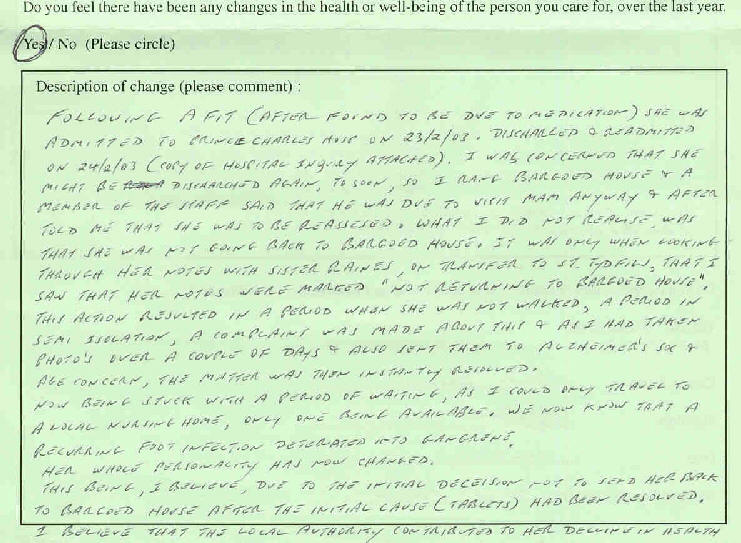 Do you feel there have been any changes in the health or well-being of the person you care for, over the last year.
Yes / No (Please circle)
Description of change (please comment) :
FOLLOWING A FIT (AFTER FOUND TO BE DUE TO MEDICATION) SHE WAS
ADMITTED TO PRINCE CHARLES HOSP ON 23/2/03. DISCHARGED & READMITTED
ON 24/2/03 (COPY OF HOSPITAL INQUIRY ATTACHED). I WAS CONCERNED THAT SHE
MIGHT BE DISCHARGED AGAIN, TO SOON, SO I RANG BARGOED HOUSE & A
MEMBER OF THE STAFF SAID THAT HE WAS DUE TO VISIT MAM ANYWAY & AFTER
TOLD ME THAT SHE WAS TO BE REASSESED. WHAT I DID NOT REALISE WAS
THAT SHE WAS NOT GOING BACK TO BARGOED HOUSE. IT WAS ONLY WHEN LOOKING
THROUGH HER NOTES WITH SISTER RAINES, ON TRANSFER TO ST. TYDFILS, THAT I
SAW THAT HER NOTES WERE MARKED "NOT RETURNING TO BARGOED HOUSE".
THIS ACTION RESULTED IN A PERIOD WHEN SHE WAS NOT WALKED, A PERIOD IN
SEMI ISOLATION, A COMPLAINT WAS MADE ABOUT THIS & AS I HAD TAKEN
PHOTO'S OVER A COUPLE OF DAYS & ALSO SENT THEM TO ALZHEIMER'S SOC &
AGE CONCERN, THE MATTER WAS THEN INSTANTLY RESOLVED.
NOW BEING STUCK WITH A PERIOD OF WAITING, AS I COULD ONLY TRAVEL TO
A LOCAL NURSING HOME, ONLY ONE BEING AVAILABLE. WE NOW KNOW THAT A
RECURRING FOOT INFECTION DETERATED INTO GANGRENE.
HER WHOLE PERSONALITY HAS NOW CHANGED.
THIS BEING, I BELIEVE, DUE TO THE INITIAL DECEISION NOT TO SEND HER BACK
TO BARGOED HOUSE AFTER THE INITIAL CAUSE (TABLETS) HAD BEEN RESOLVED.
I BELIEVE THAT THE LOCAL AUTHORITY CONTRIBUTED TO HER DECLINE IN HEALTH